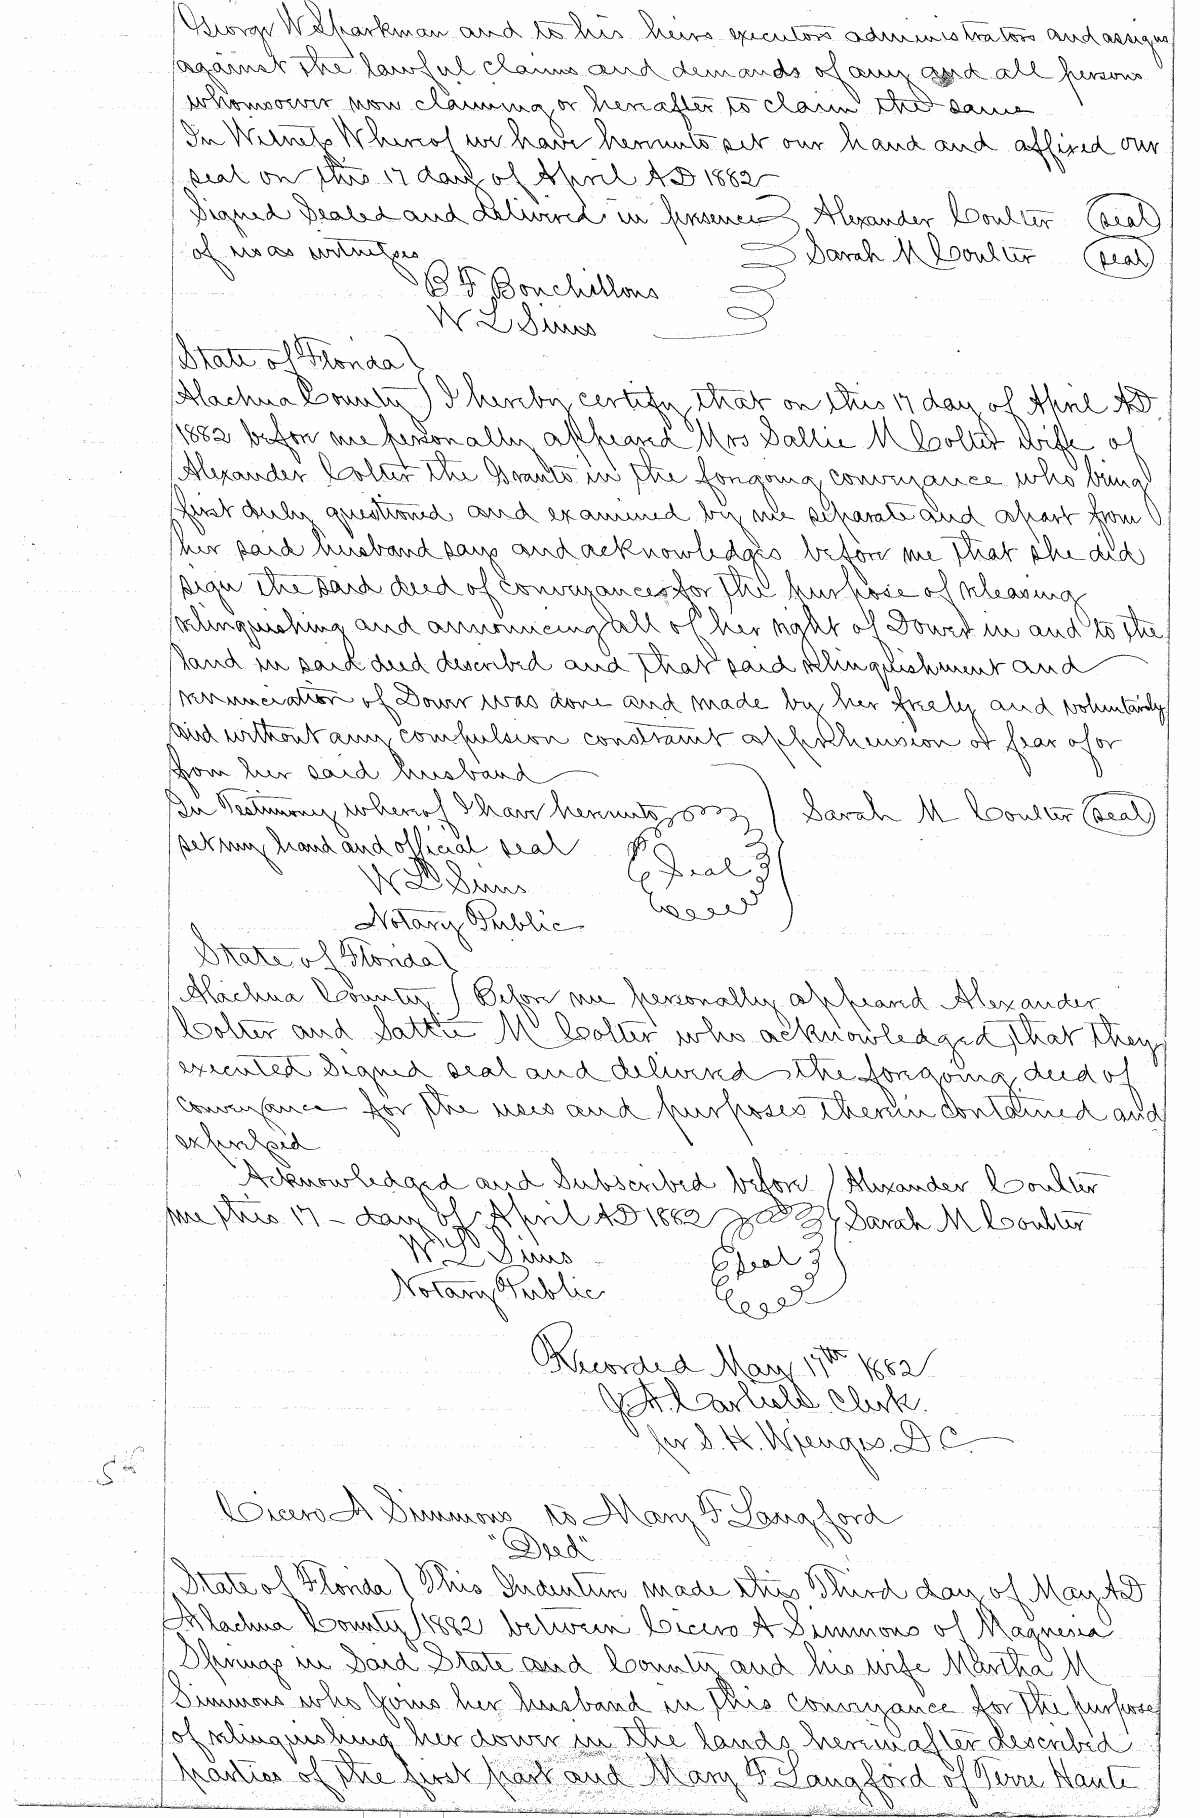 George W Sparkman and to his heirs executors administrators and assigns
against the lawful claims and demands of any and all persons
whomsoever now claiming or hereafter to claim the same
In Witness Whereof we have hereunto set our hand and affixed our
seal on this 17 day of April AD 1882
Signed Sealed and delivered in presence Alexander Coulter (seal)
of us as witnesses Sarah M Coulter (seal)
B F Bonchillons
W L Sims
State of Florida
Alachua County I hereby certify that on this 17 day of April AD
1882 before me personally appeared Mrs Sallie M Colter wife of
Alexander Colter the Granto in the forgoing conveyance who being
first duly questioned and examined by me separate and apart from
her said husband says and acknowledges before me that she did
sign the said deed of conveyances for the purpose of releasing
relinquishing and announcing all of her right of Dower in and to the
land in said deed described and that said relinquishment and
renunciation of Dower was done and made by her freely and voluntarily
and without any compulsion constraint apprehension or fear of or
from her said husband
In Testimony whereof I have hereunto Sarah M Coulter (seal)
set my hand and official seal Seal
W L Sims
Notary Public
State of Florida
Alachua County Before me personally appeared Alexander
Colter and Sattie M Colter who acknowledged that they
executed Signed seal and delivered the foregoing deed of
conveyance for the uses and purposes therein contained and
expressed
Acknowledged and Subscribed before Alexander Coulter
me this 17 - day of April AD 1882 Sarah M Coulter
W L Sims Seal
Notary Public
Recorded May 17th 1882
J. A. Carlisle Clerk.
per S. H. Wienges. D. C.
5th
Cicero A Simmons to Mary F Langford
"Deed"
State of Florida This Indenture made this Third day of May AD
Alachua County 1882 between Cicero A Simmons of Magnesia
Springs in Said State and County and his wife Martha M
Simmons who joins her husband in this conveyance for the purpose
of relinquishing her dower in the lands hereinafter described
parties of the first part and Mary F Langford of Terre Haute